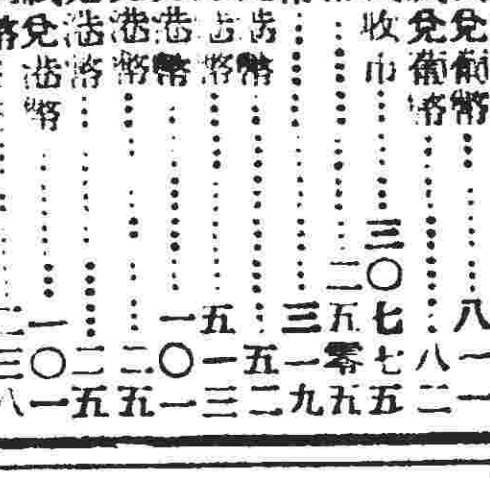 兌葡幣⋯⋯八一一
兌葡幣⋯⋯八二
收市⋯⋯三〇七七五
⋯⋯二五零五
⋯⋯三一九
港幣⋯⋯五二
港幣⋯⋯五一三
港幣⋯⋯一〇一
港幣⋯⋯二五
港幣⋯⋯二五
兌港幣⋯⋯一〇一
幣⋯⋯二三八